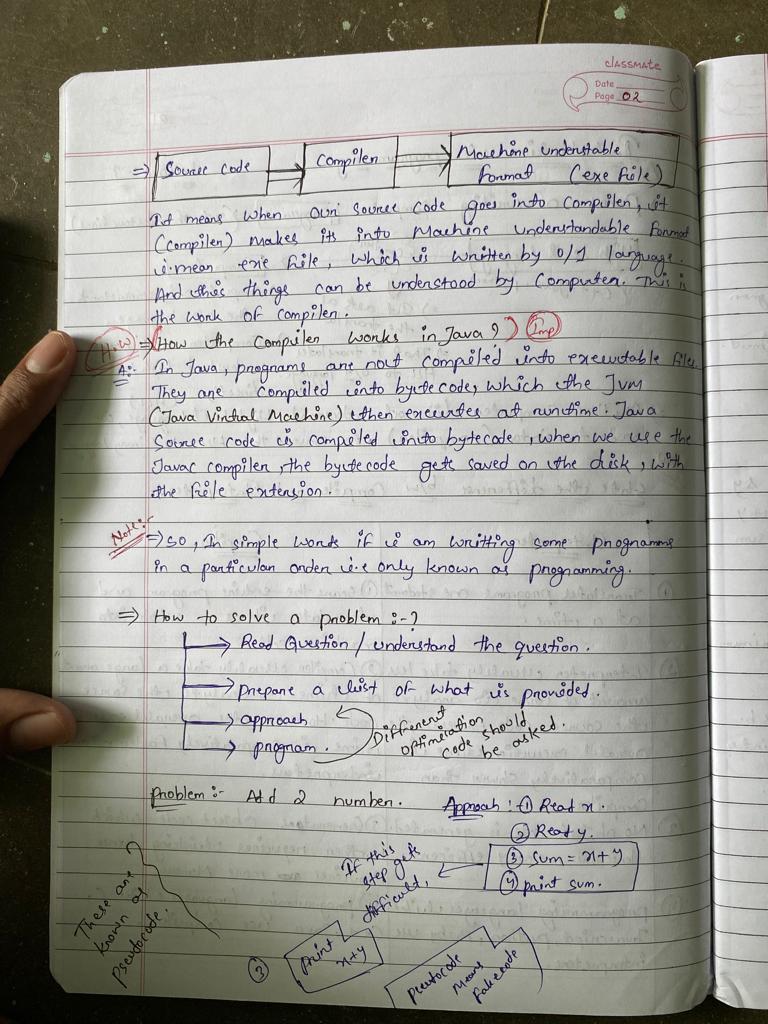 classmate
Date
Page 02
=> Source code → Compiler → Machine understable
format (exe file)
It means when our source code goes into compiler, it
(compiler) makes its into Machine understandable format
i.mean exe file, which is written by 0/1 language.
And this things can be understood by Computer. This is
the work of compiler.
H.W => (How the Compiler works in Java?) Imp
A:- In Java, programs are not compiled into executable files.
They are compiled into bytecode, which the JVM
(Java Virtual Machine) then executes at runtime. Java
Source code is compiled into bytecode, when we use the
Javac compiler, the bytecode gets saved on the disk, with
the file extension.
Note:-
=> so, In simple words if i am writting some programs
in a particular order i.e only known as programming.
=> How to solve a problem :-?
→ Read Question / understand the question.
→ prepare a list of what is provided.
→ approach
→ program.
Different
optimization
code should
be asked.
Problem :- Add 2 number. Approach : ① Read x.
② Read y.
③ sum = x+y
④ print sum.
If this
step gets
difficult,
These are
known as
pseutocode.
③ print
x+y
pseutocode
means
fakecode